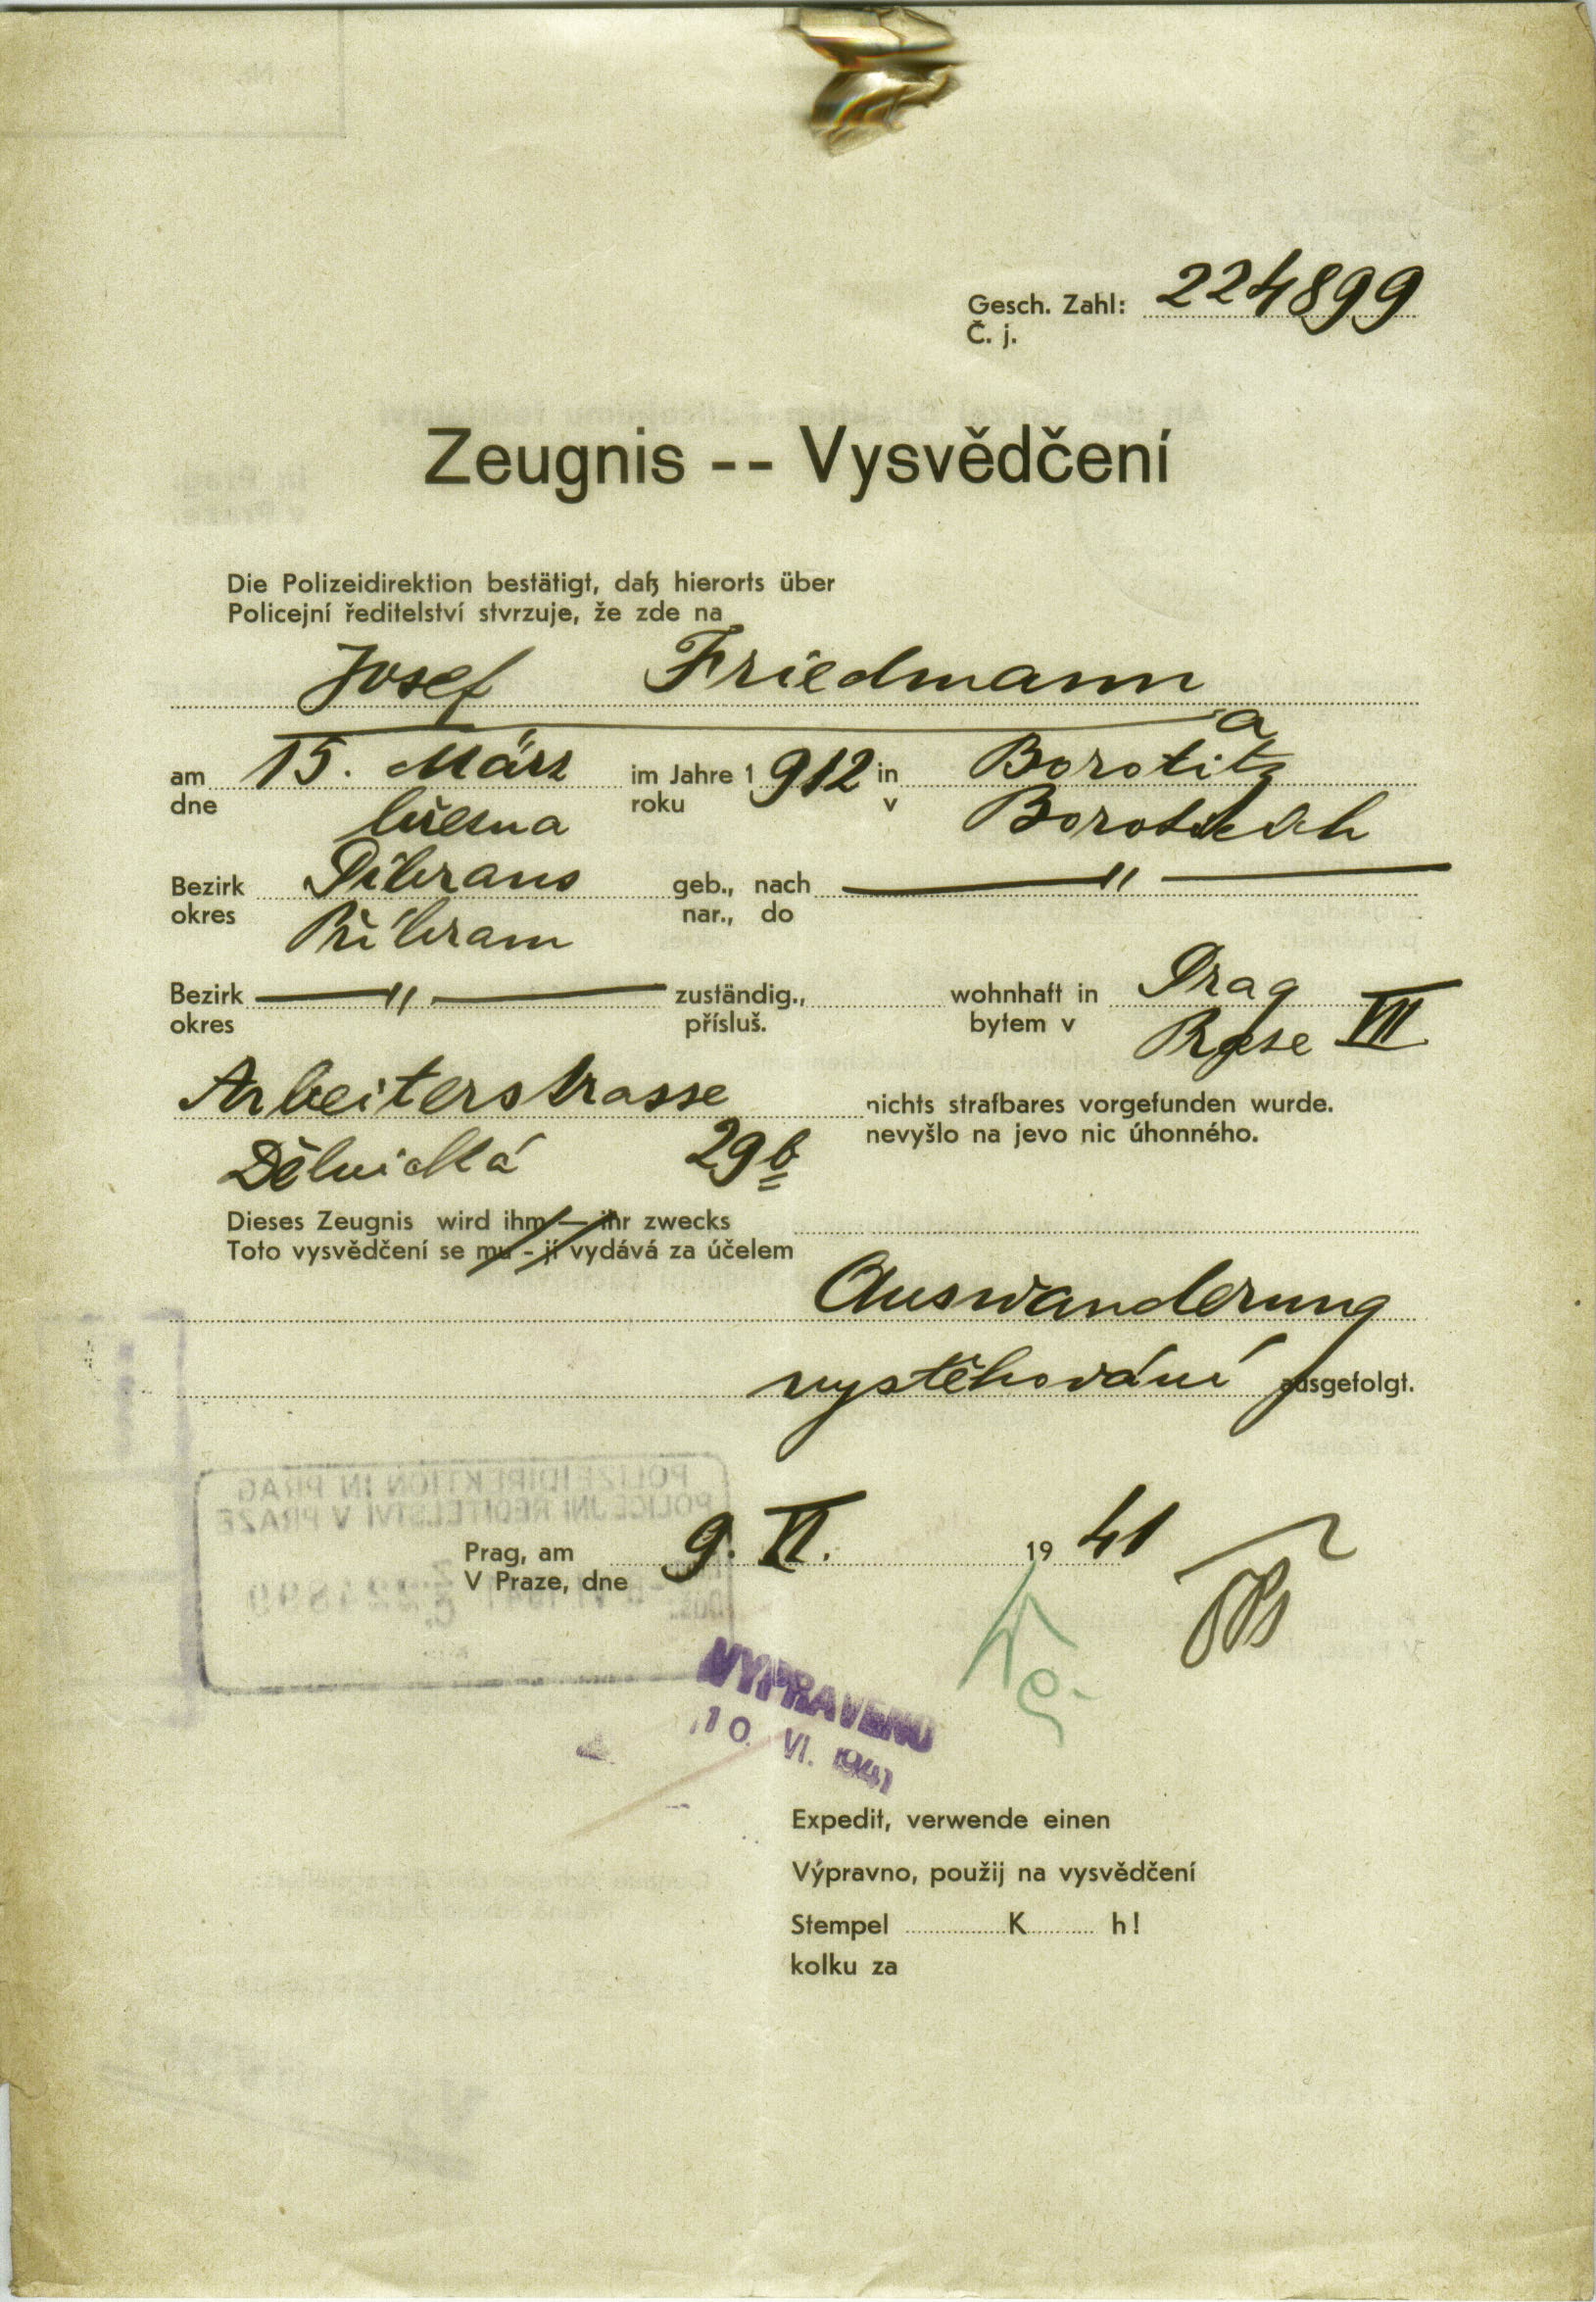 Gesch. Zahl: 224899
Č. j.
Zeugnis -- Vysvědčení
Die Polizeidirektion bestätigt, daß hierorts über
Policejní ředitelství stvrzuje, že zde na
Josef Friedmann
a
am 15. März im Jahre 1 912 in Borotitz
dne března roku v Boroticích
Bezirk Pibrans geb., nach — " —
okres Příbram nar., do
Bezirk — " — zuständig., wohnhaft in Prag
okres přísluš. bytem v Praze VII
Arbeiterstrasse nichts strafbares vorgefunden wurde.
nevyšlo na jevo nic úhonného.
Dělnická 29b
Dieses Zeugnis wird ihm — ihr zwecks
Toto vysvědčení se mu - jí vydává za účelem
Auswanderung
vystěhování ausgefolgt.
POLIZEIDIREKTION IN PRAG
POLICEJNÍ ŘEDITELSTVÍ V PRAZE
Prag, am 9. VI. 19 41
V Praze, dne
VI 1941 224899
VYPRAVENO
10. VI. 1941
Expedit, verwende einen
Výpravno, použij na vysvědčení
Stempel K h!
kolku za